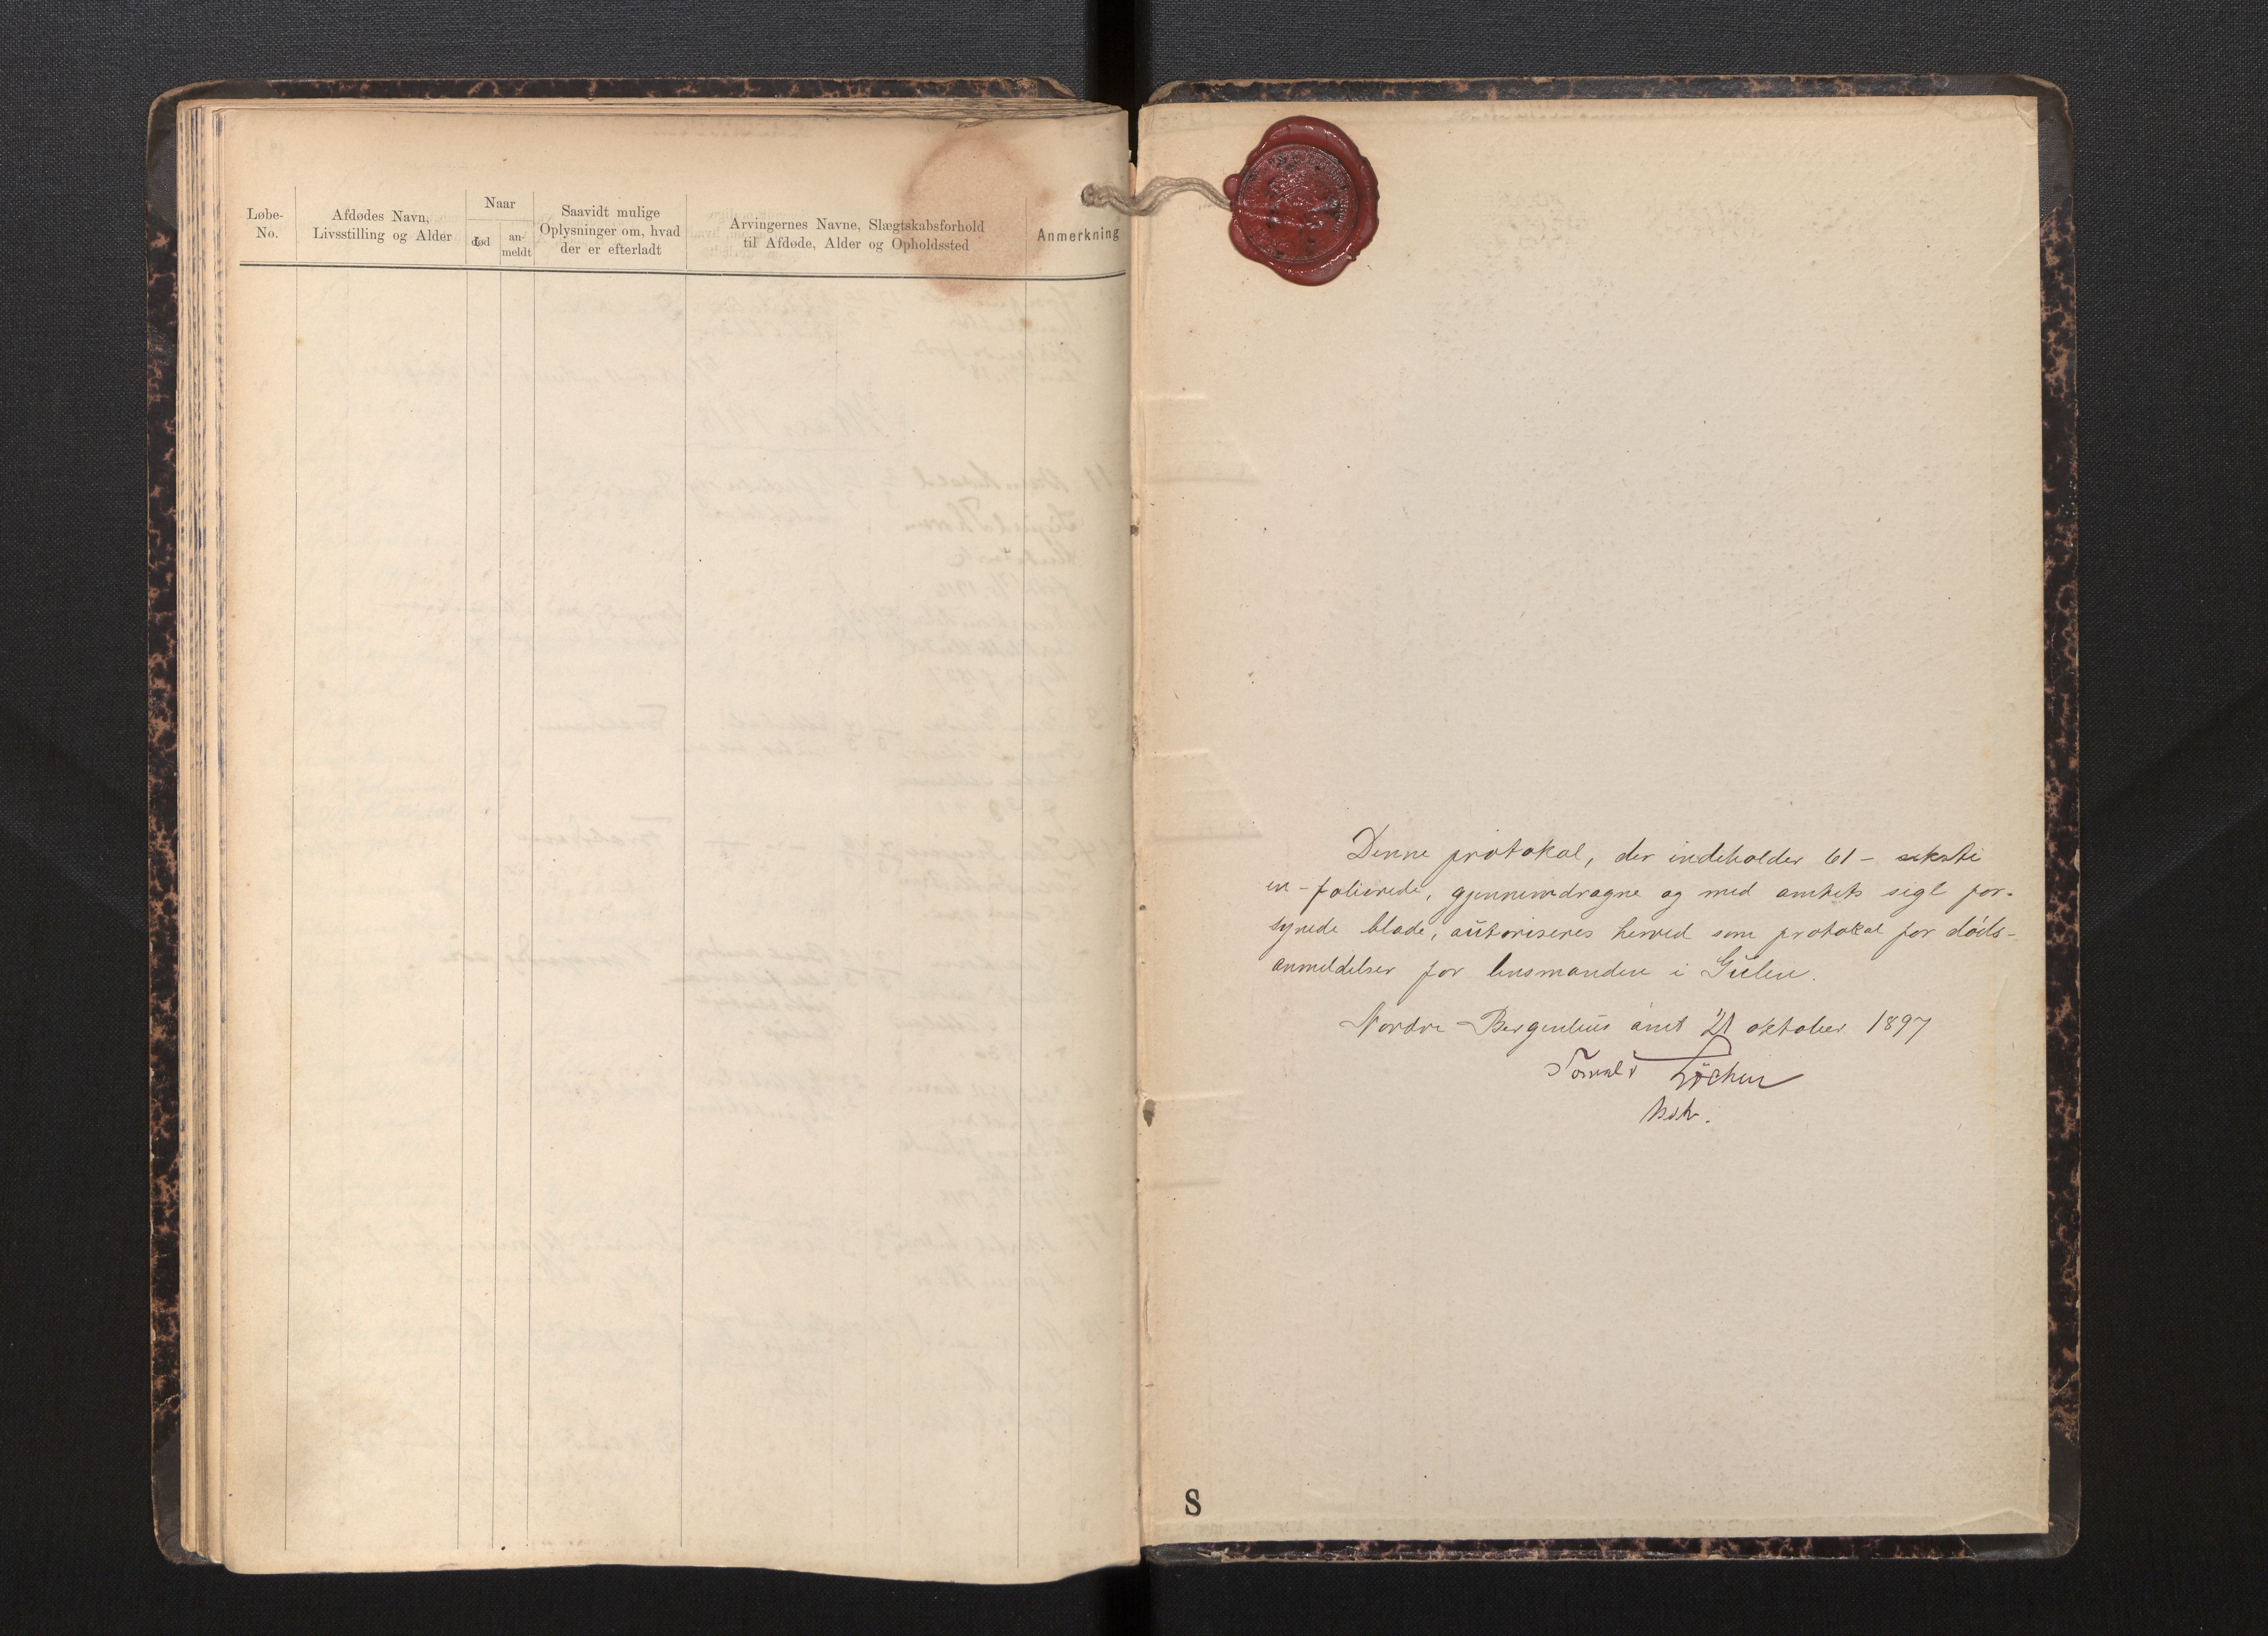 Løbe-
No.
Afdødes Navn,
Livsstilling og Alder
Naar
død
an-
meldt
Saavidt mulige
Oplysninger om, hvad
der er efterladt
Arvingernes Navne, Slægtskabsforhold
til Afdøde, Alder og Opholdssted
Anmerkning
Denne protokol, der indeholder 61 – seksti
en – folierede, gjennemdragne og med amtets segl for-
synede blade, autoriseres herved som protokol for døds-
anmeldelser for lensmanden i Gulen.
Nordre Bergenhus amt 21 oktober 1897
Løchen
S